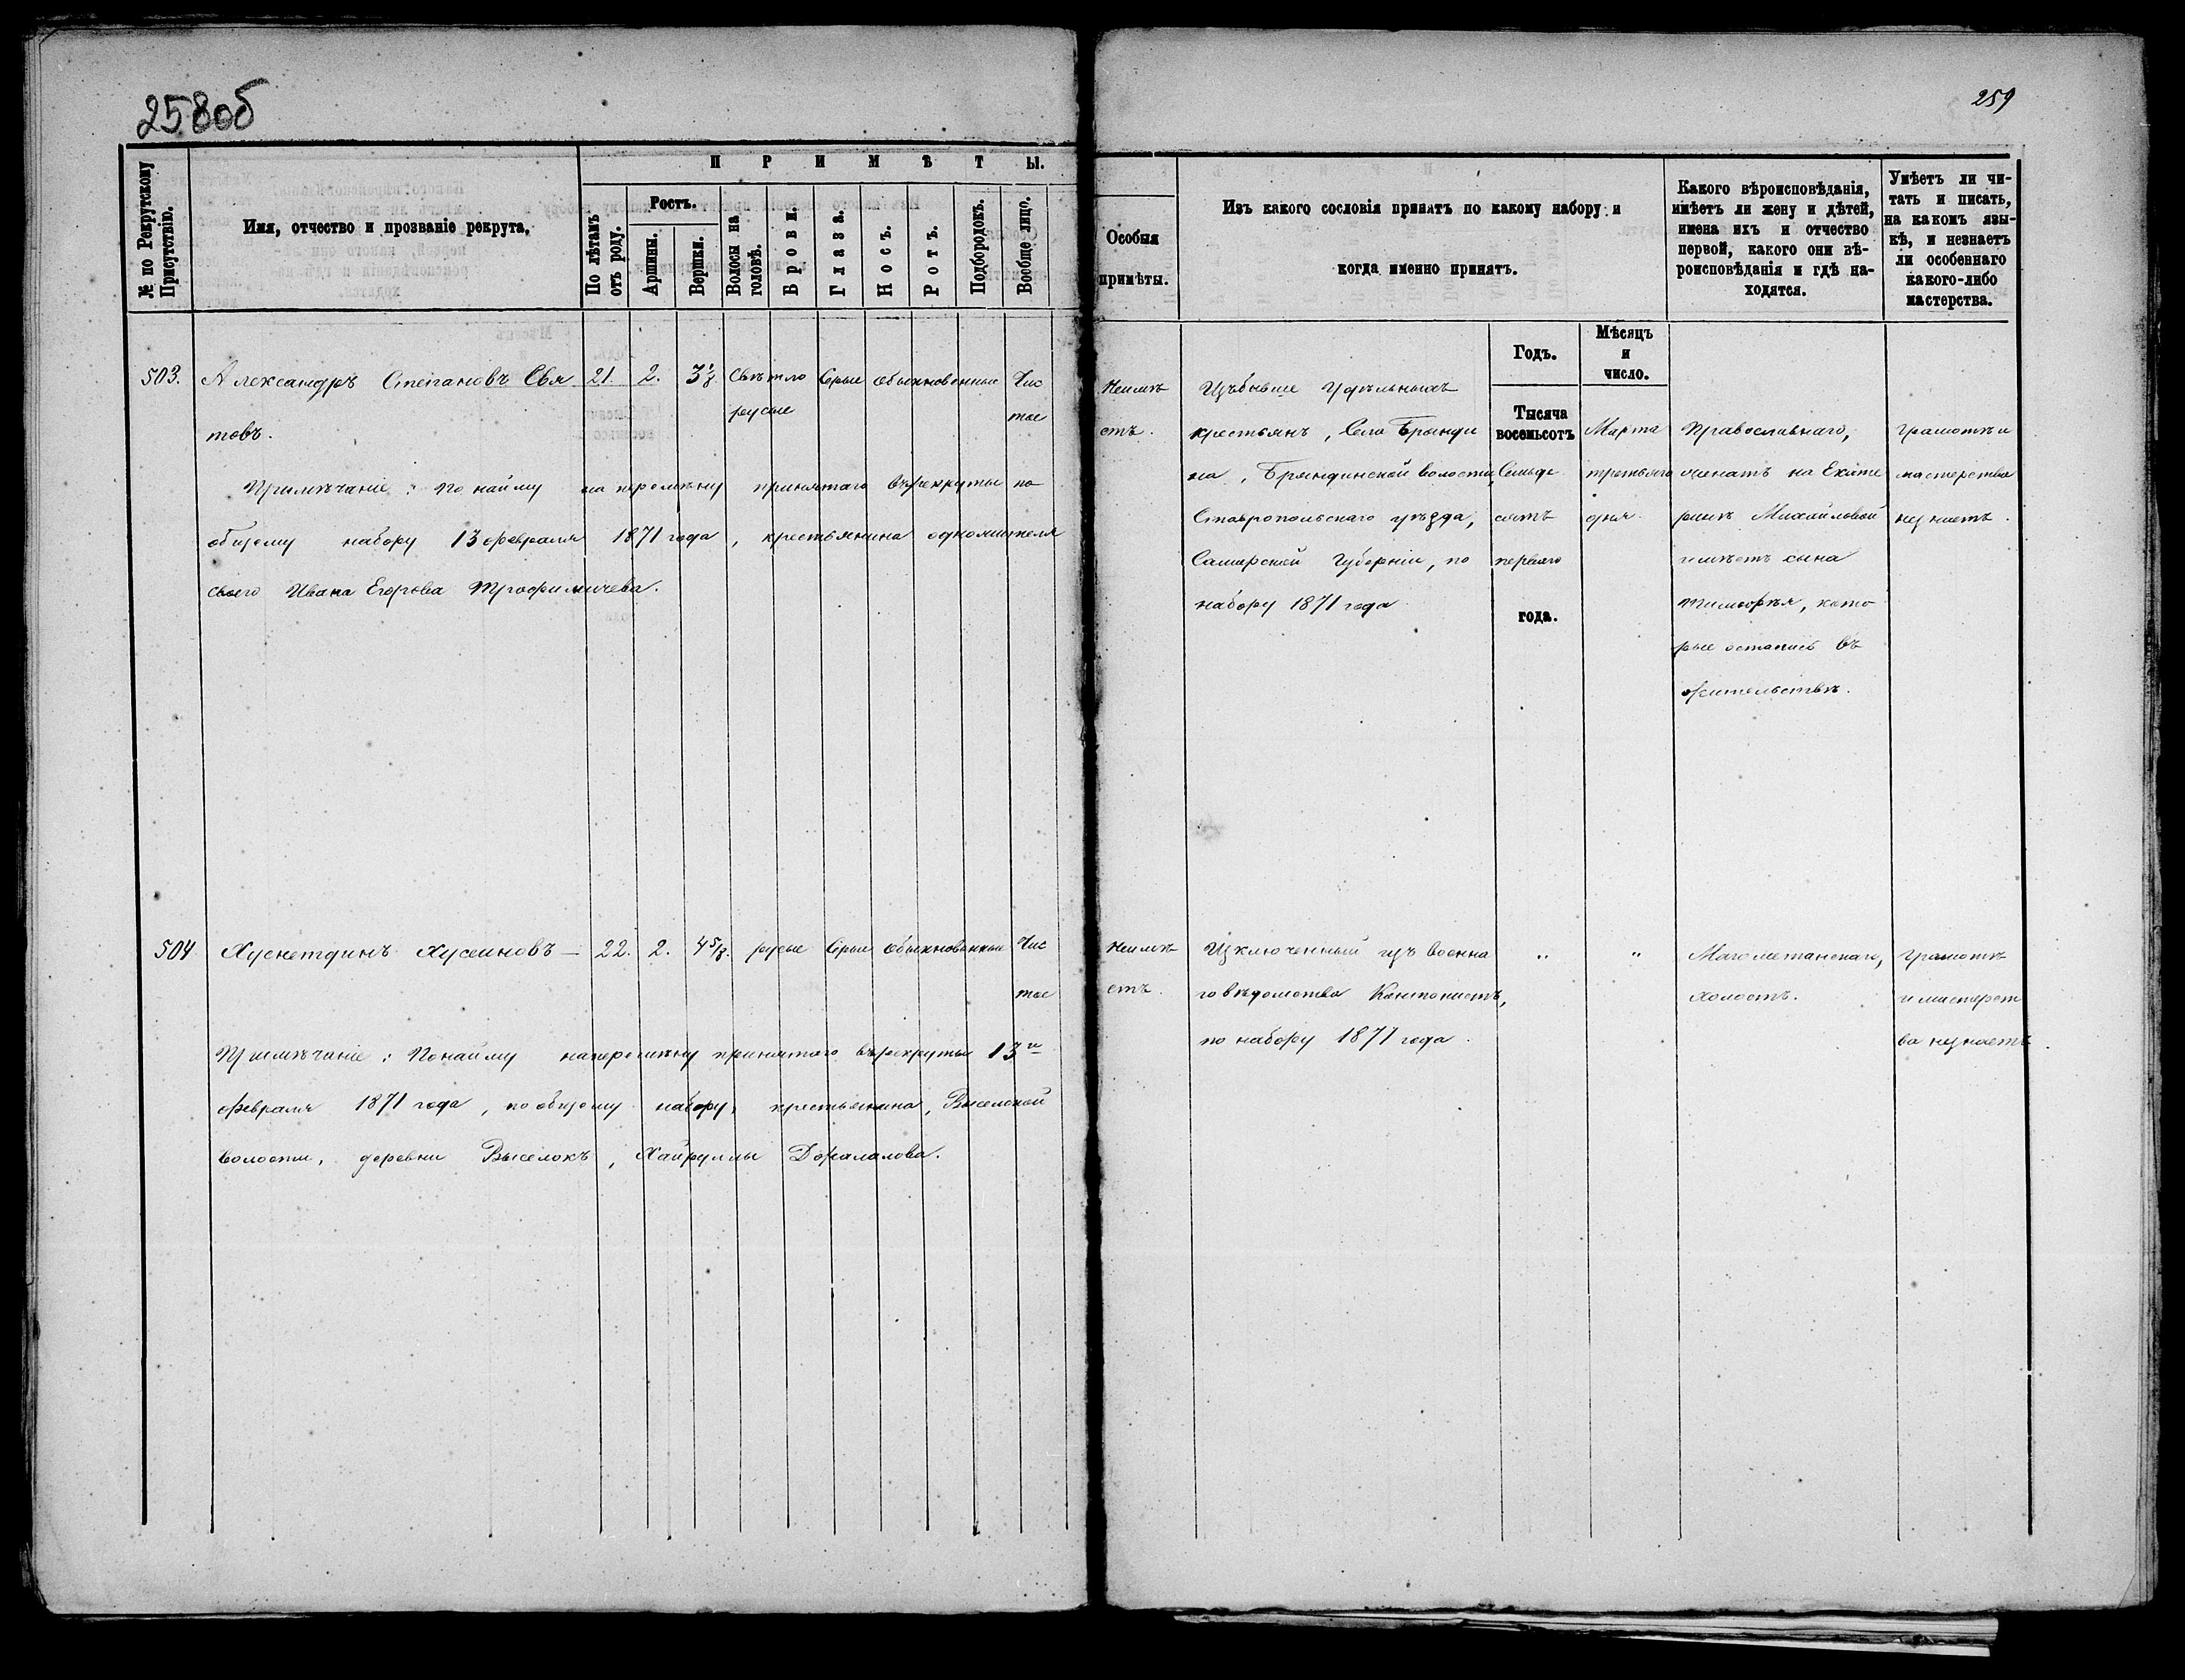 258об
259
П Р И М Ѣ Т Ы.
№ по Рекрутскому Присутствію.
Имя, отчество и прозваніе рекрута.
По лѣтамъ отъ роду.
Ростъ.
Аршины.
Вершки.
Волосы на головѣ.
Брови.
Глаза.
Носъ.
Ротъ.
Подбородокъ.
Вообще лицо.
Особыя
примѣты.
Изъ какого сословія принятъ по какому набору и
когда именно принятъ.
Какого вѣроисповѣданія,
имѣетъ ли жену и дѣтей,
имена ихъ и отчество
первой, какого они вѣ-
роисповѣданія и гдѣ на-
ходятся.
Умѣетъ ли чи-
тать и писать,
на какомъ язы-
кѣ, и незнаетъ
ли особеннаго
какого-либо
мастерства.
Годъ.
Мѣсяцъ
и
число.
503. Александръ Степановъ Свя 21. 2. 3 1/8. Свѣтло Серые обыкновенные Чис
товъ. русые тое
Примѣчаніе: По найму на перемѣну принятаго въ рекруты по
общему набору 13 февраля 1871 года, крестьянина одножителя
своего Ивана Егорова Трофимычева.
Неимѣ
етъ.
Изъ бывше Удѣльныхъ
крестьянъ, Села Брянди
на, Бряндинской волости,
Ставропольскаго уѣзда,
Самарской Губерніи, по
набору 1871 года
Тысяча
восемьсотъ
Семьде
сятъ
перваго
года.
Марта
третьяго
дня
Православнаго,
женатъ на Екате
ринѣ Михайловой
имѣетъ сына
Тимофѣя, кото
рые остались въ
жительствѣ.
Грамотѣ и
мастерства
незнаетъ.
504 Хуснетдинъ Хусеиновъ — 22. 2. 4 5/8. русые Серые обыкновенные Чис
тое
Примѣчаніе: По найму на перемѣну принятаго въ рекруты 13го
февраля 1871 года, по общему набору, крестьянина, Выселской
волости, деревни Выселокъ, Хайруллы
Неимѣ
етъ.
Изключенный изъ военна
го вѣдомства Кантонистъ,
по набору 1871 года.
" "
Магометанскаго,
холостъ.
Грамотѣ
и мастерст
ва незнаетъ.